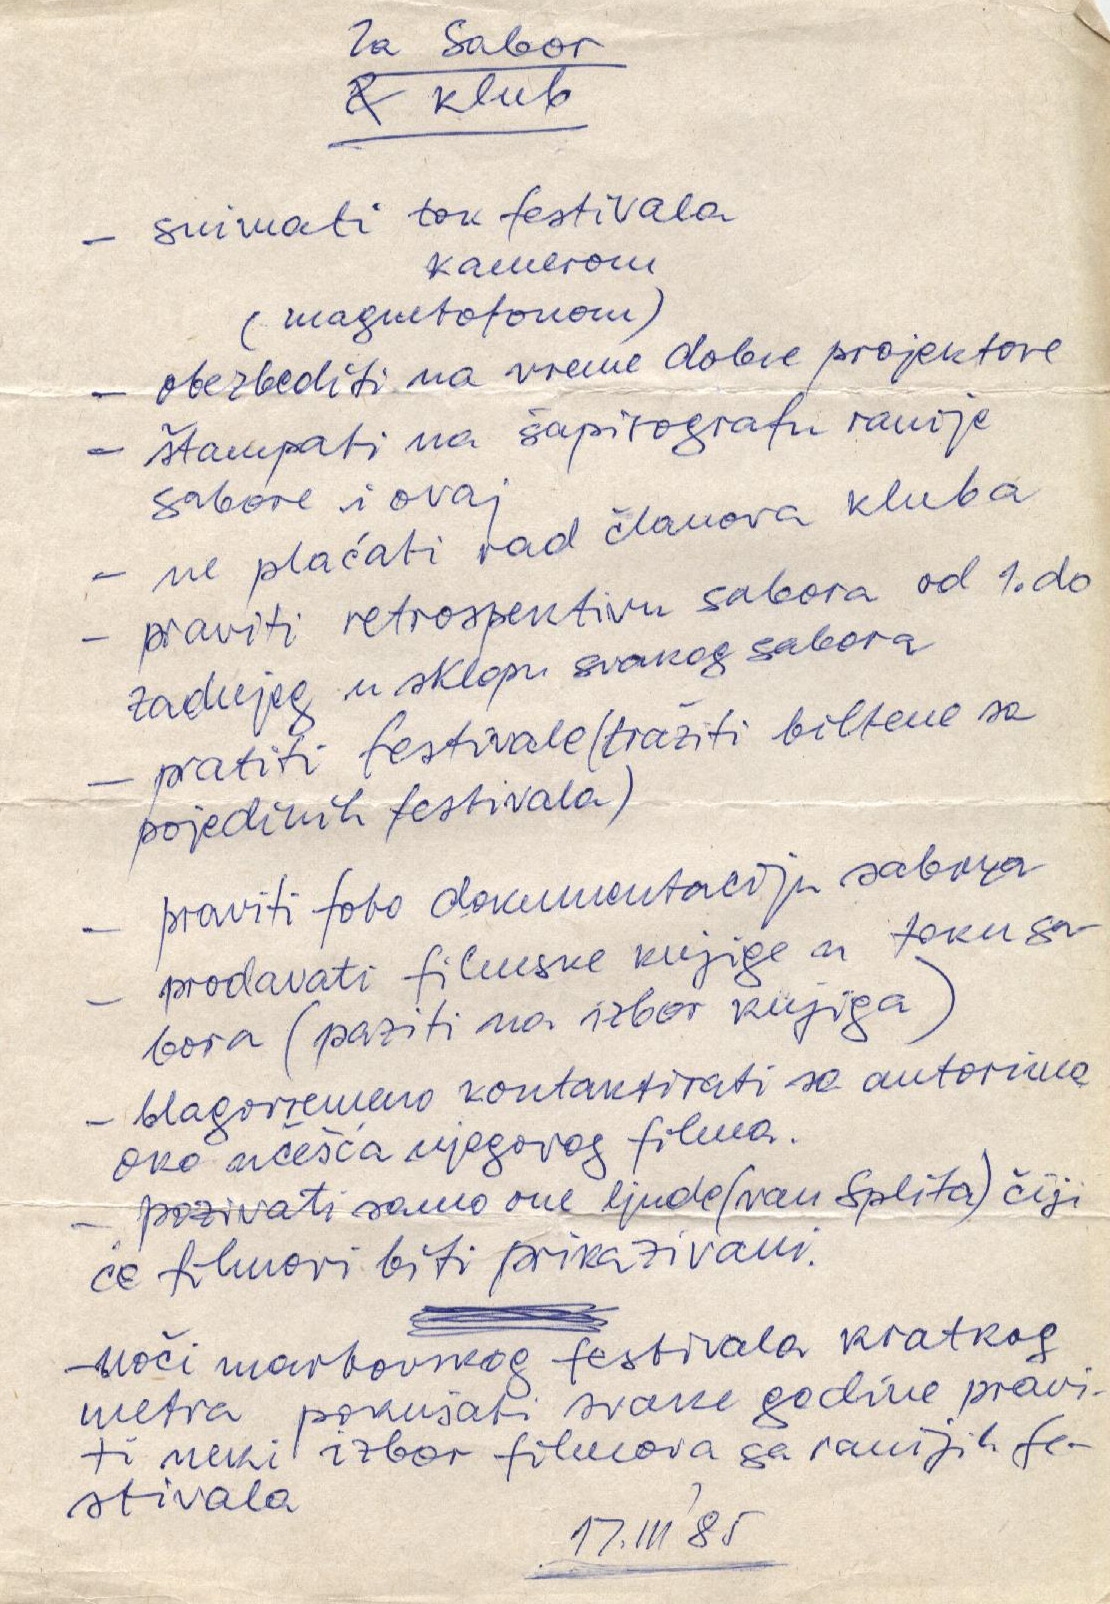 Za Sabor
& klub
- snimati tok festivala
kamerom
(magnetofonom)
- obezbediti na vreme dobre projektore
- štampati na šapirografu ranije
sabore i ovaj
- ne plaćati rad članova kluba
- praviti retrospektivu sabora od 1. do
zadnjeg u sklopu svakog sabora
- pratiti festivale (tražiti biltene sa
pojedinih festivala)
- praviti foto dokumentaciju sabora
- prodavati filmske knjige u toku sa-
bora (paziti na izbor knjiga)
- blagovremeno kontaktirati sa autorima
oko učešća njegovog filma.
- pozivati samo one ljude (van Splita) čiji
će filmovi biti prikazivani.
- uoči martovskog festivala kratkog
metra pokušati svake godine pravi-
ti neki izbor filmova sa ranijih fe-
stivala
17.III '85